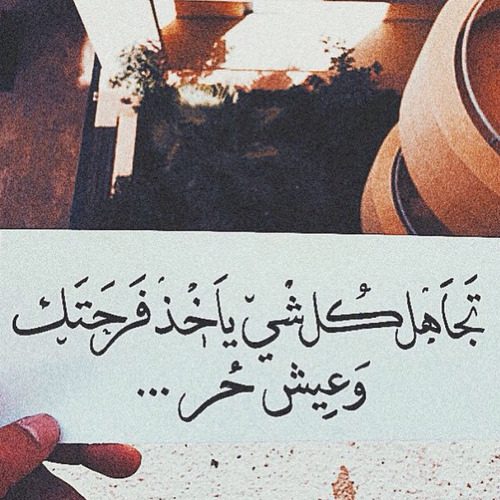 تَجَاهِل كُل شْيّ يَاخْذ فَرحَتَك
وَعِيش حُر ...